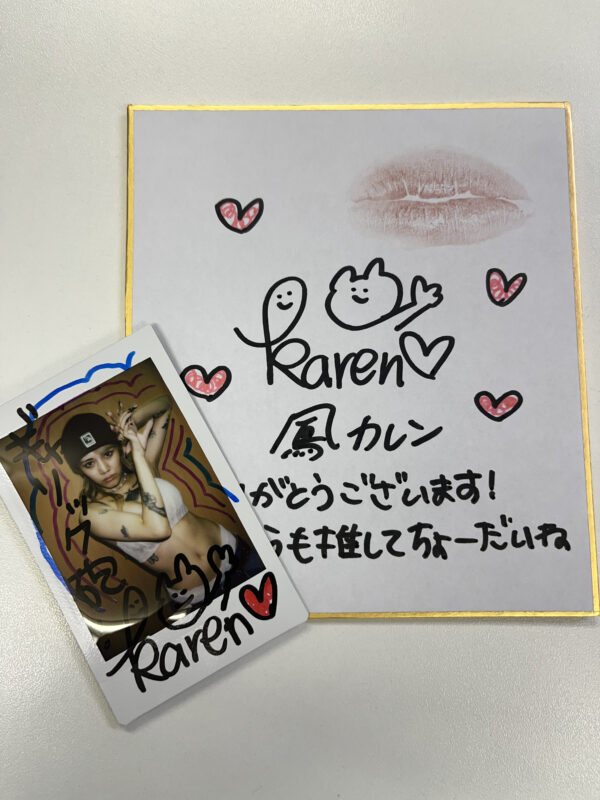 Karen
鳳カレン
がとうございます!
も推してちょーだいね
Karen